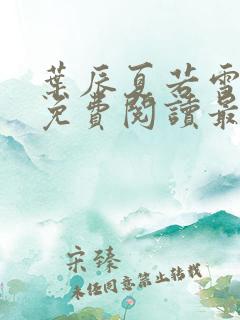 葉辰夏若雪
免費閱讀最
宋臻
未經同意禁止轉載